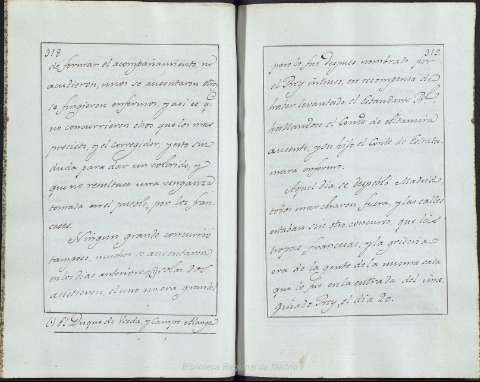 318
de formar el acompañamiento, no
acudieron, unos se ausentaron otros
se fingieron enfermos, y así es q.
no concurrieron otros que los mas
precisos, y el corregidor, y esto sin
duda para dar un colorido, y
que no resultase una venganza
tomada en el pueblo, por los fran
ceses.
Ningun grande concurrió
tampoco, muchos se ausentaron
en los dias anteriores, solos dos
asistieron, el uno no era grande
(1) El Duque de Uceda, y Campo Alange
319
pero lo fue despues nombrado por
el Rey intruso, en recompensa de
haber levantado el Estandarte Rl.
hallandose el Conde de Altamira
ausente, y su hijo el Conde de Trasta
mara enfermo.
Aquel dia se despobló Madrid,
todos marcharon fuera, y las calles
estaban sin otro concurso, que las
tropas Francesas, y la griteria
era de la gente de la misma casa
que lo fue en la entrada del
Rey, el dia 20.
Biblioteca Regional de Madrid